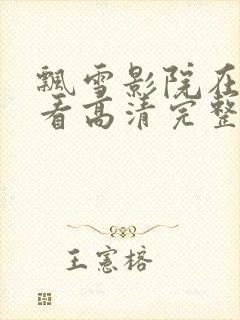 飘雪影院在
看高清完整
王宪榕